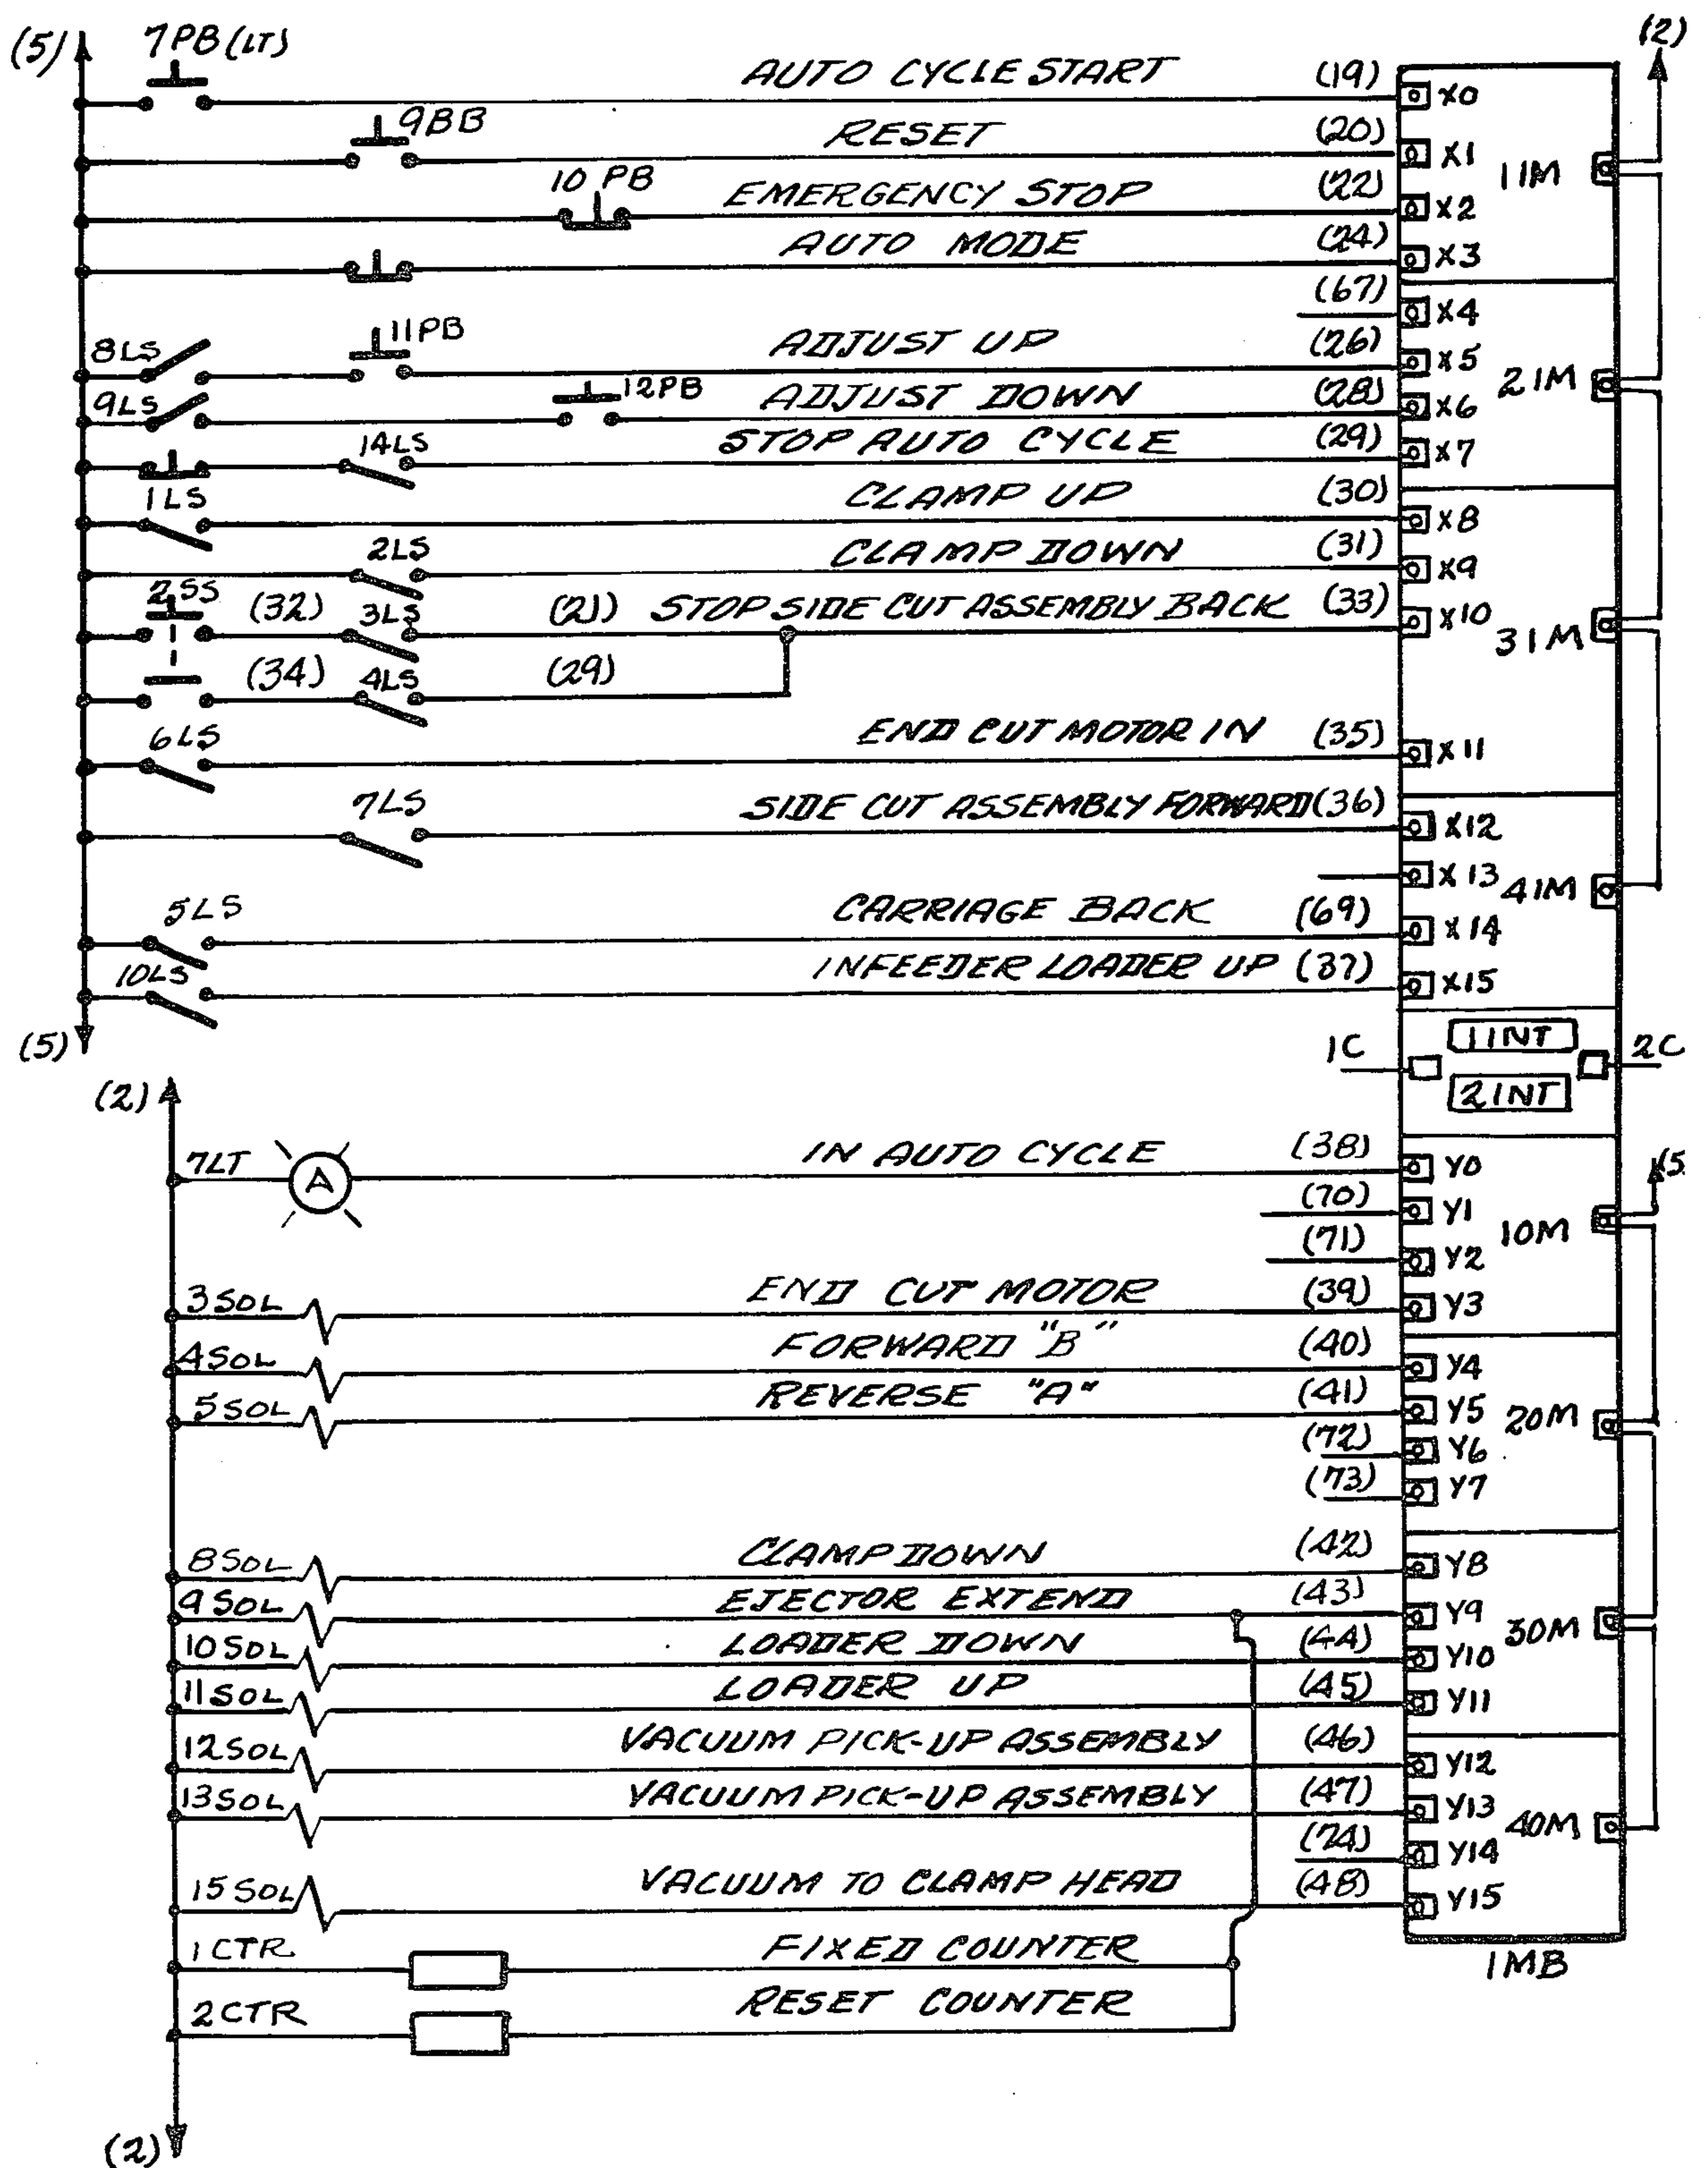 (5) 7PB (LT) AUTO CYCLE START (19) X0 (2)
9BB RESET (20) X1 11M
10 PB EMERGENCY STOP (22) X2
AUTO MODE (24) X3
(67) X4
8LS 11PB ADJUST UP (26) X5 21M
9LS 12PB ADJUST DOWN (28) X6
14LS STOP AUTO CYCLE (29) X7
1LS CLAMP UP (30) X8
2LS CLAMP DOWN (31) X9
2SS (32) 3LS (21) STOP SIDE CUT ASSEMBLY BACK (33) X10 31M
(34) 4LS (29)
6LS END CUT MOTOR IN (35) X11
7LS SIDE CUT ASSEMBLY FORWARD (36) X12
X13 41M
5LS CARRIAGE BACK (69) X14
10LS INFEEDER LOADER UP (37) X15
(5) 1C 1INT 2C
2INT
(2)
7LT A IN AUTO CYCLE (38) Y0 (5
(70) Y1 10M
(71) Y2
3SOL END CUT MOTOR (39) Y3
4SOL FORWARD "B" (40) Y4
5SOL REVERSE "A" (41) Y5 20M
(72) Y6
(73) Y7
8SOL CLAMP DOWN (42) Y8
9SOL EJECTOR EXTEND (43) Y9 30M
10SOL LOADER DOWN (44) Y10
11SOL LOADER UP (45) Y11
12SOL VACUUM PICK-UP ASSEMBLY (46) Y12
13SOL VACUUM PICK-UP ASSEMBLY (47) Y13 40M
(74) Y14
15SOL VACUUM TO CLAMP HEAD (48) Y15
1CTR FIXED COUNTER 1MB
2CTR RESET COUNTER
(2)